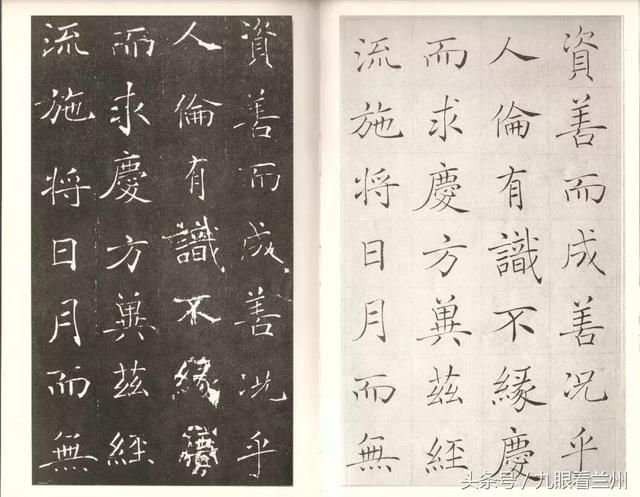 資善而成善況乎
人倫有識不緣慶
而求慶方兾茲經
流施将日月而無
資善而成善況乎
人倫有識不緣慶
而求慶方兾茲經
流施将日月而無
头条号/九眼看兰州